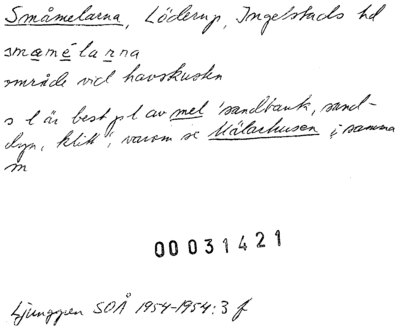 Småmelarna, Löderup, Ingelstads hd
smæmélarna
område vid havskusten
s l är best pl av mel 'sandbank, sand-
dyn, klitt', varom se Mälarhusen i samma
sn
00031421
Ljunggren SOÅ 1954-1954:3 f